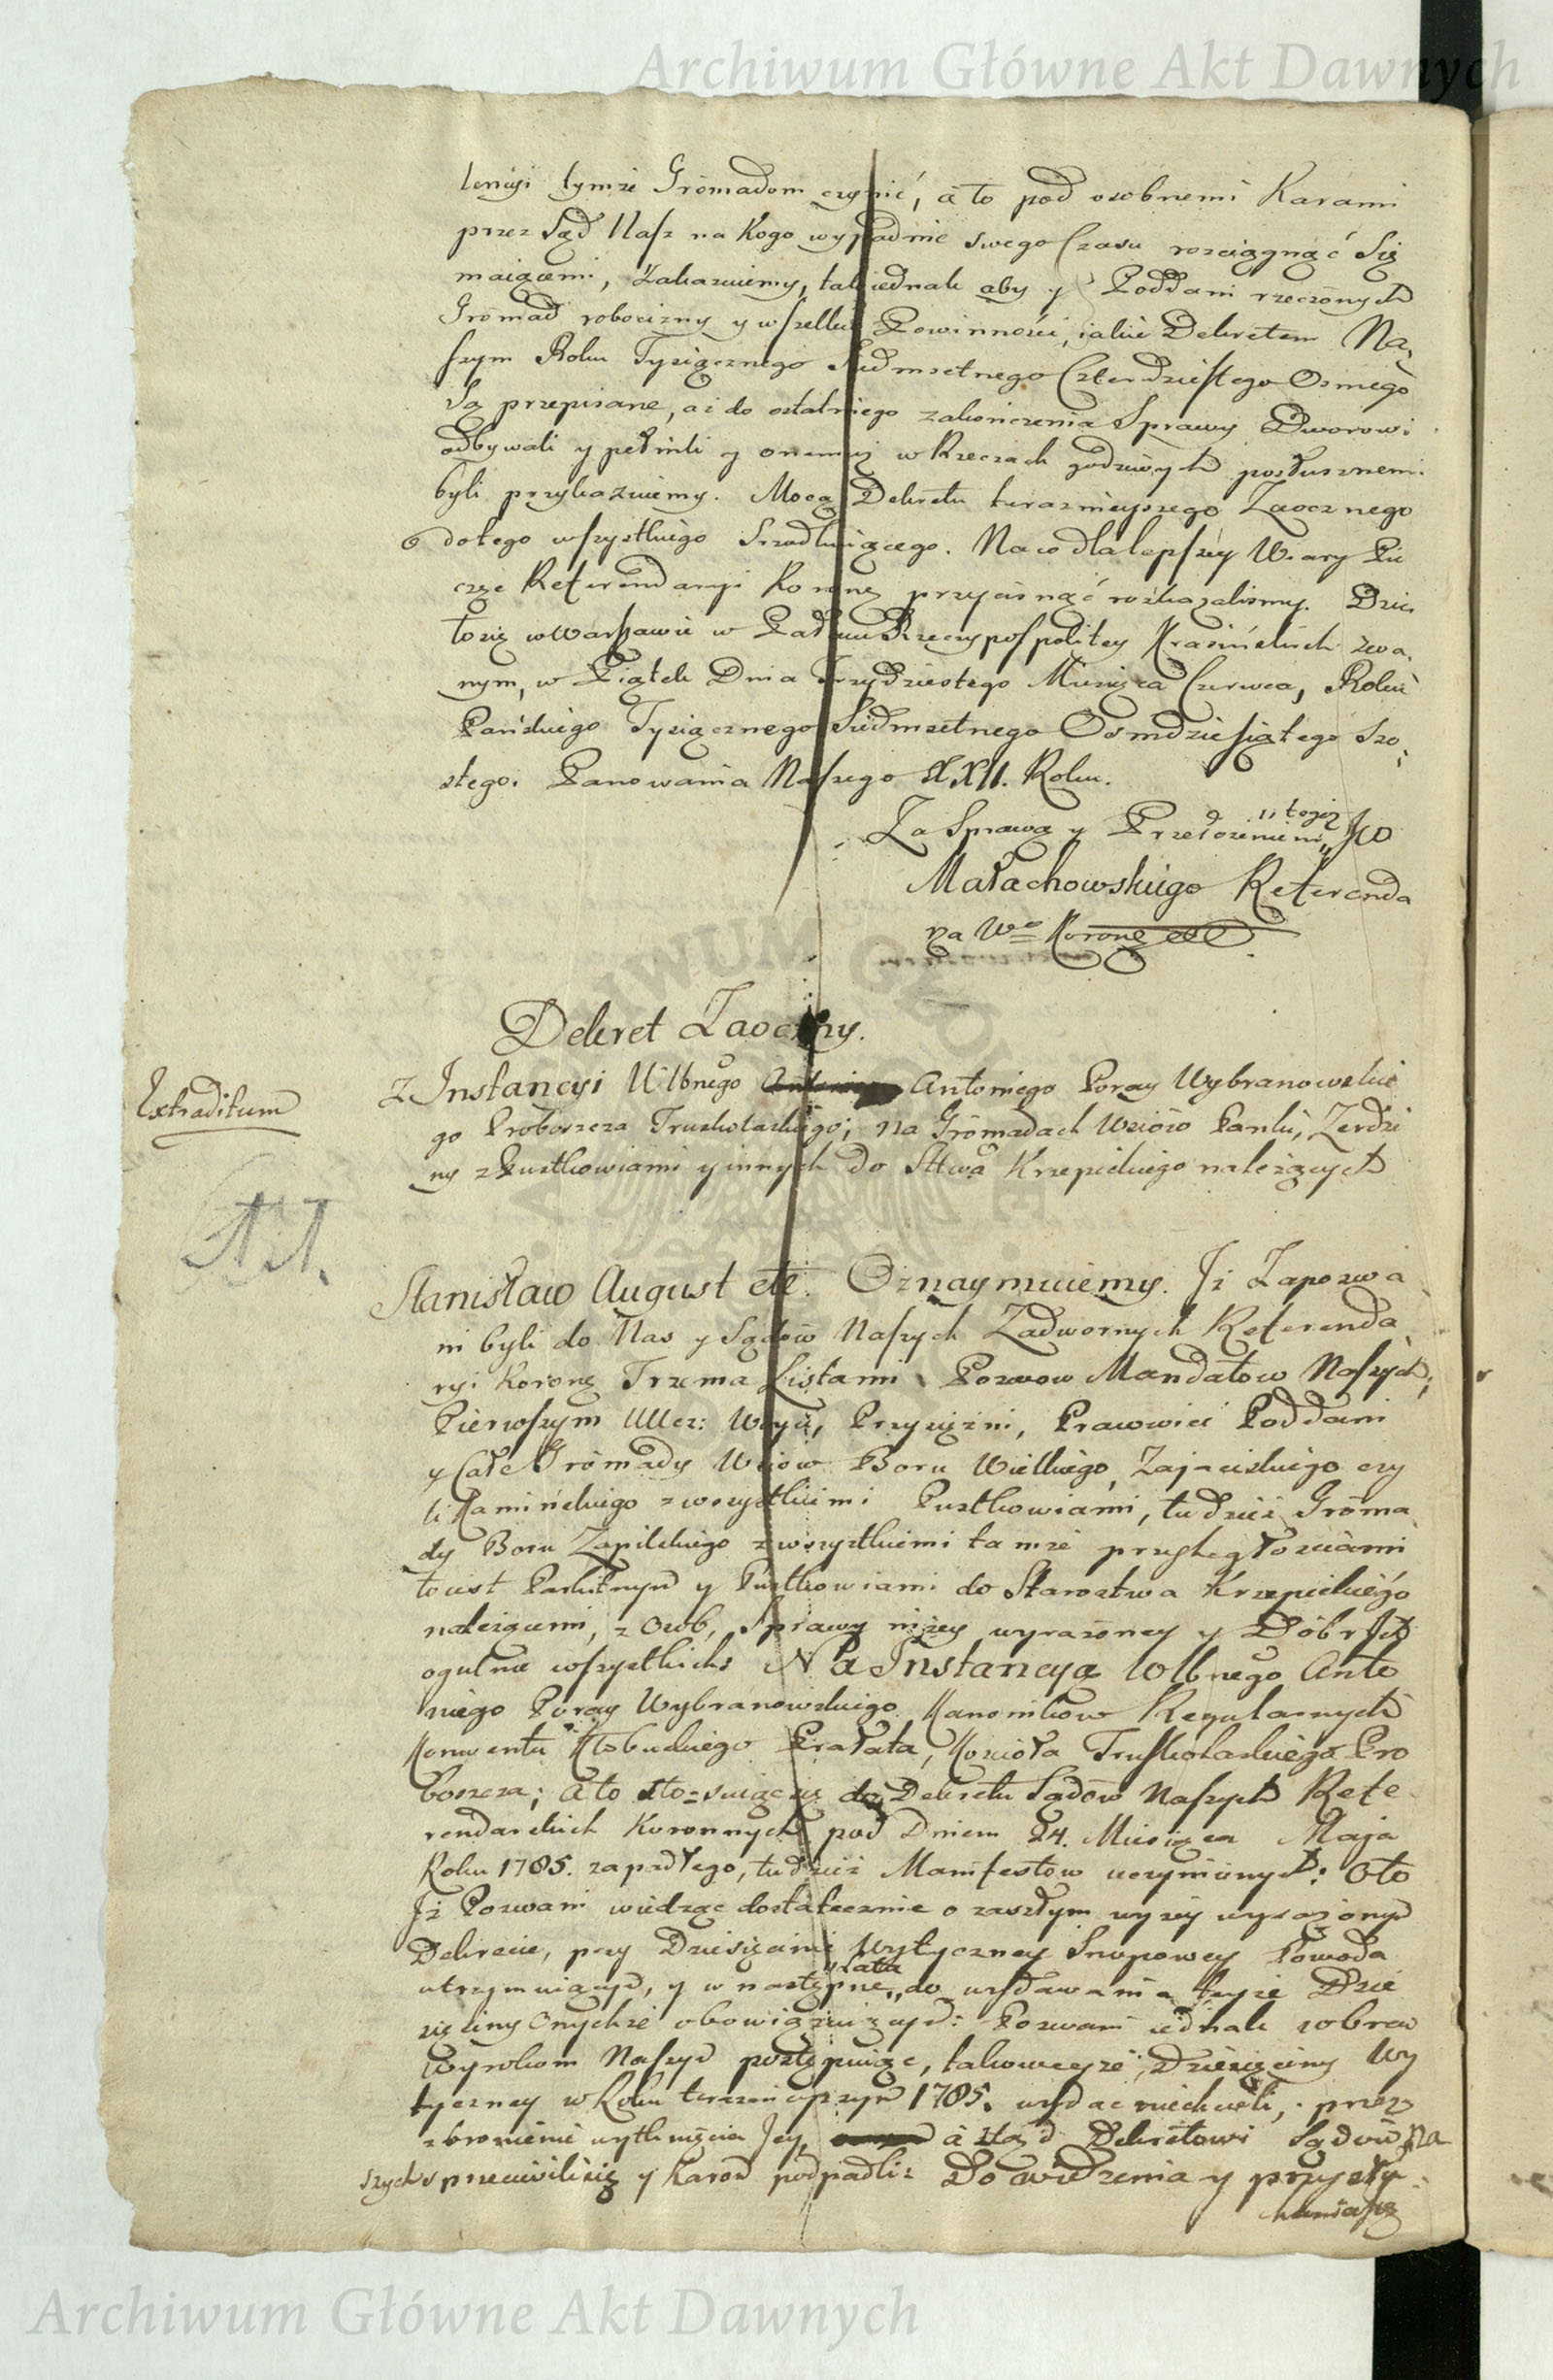 Archiwum Główne Akt Dawnych
tencyi tymże Gromadom czynić, a to pod osobnemi Karami
przez Sąd Nasz na Kogo wypadnie swego Czasu rozciągnąć Się
maiącemi, Zakazuiemy, tak iednak aby y Poddani rzeczonych
Gromad robocizny y wszelkie Powinności, iakie Dekretem Na
szym Roku Tysiącznego Siedmsetnego Czterdziestego Osmego
Są przepisane, aż do ostatniego zakończenia Sprawy Dworowi
odbywali y pełnili y onemuż w Rzeczach godziwych posłusznemi
byli przykazuiemy. Mocą Dekretu teraznieyszego Zaocznego
o dotego wszystkiego Srzodkuiącego. Na co dla lepszey Wiary Pie
częc Referendaryi Koronney przycisnąć rozkazalismy. Dzia
ło się w Warszawie w Pałacu Rzeczypospolitey Krasińskich zwa
nym, w Piątek Dnia Trzydziestego Miesiąca Czerwca, Roku
Pańskiego Tysiącznego Siedmsetnego Osmdziesiątego Szo
stego. Panowania Naszego XXII. Roku.
Za Sprawą y Przełożeniem " tegoż JW
Małachowskiego Referenda
rza Wgo Koronne etc
Dekret Zaoczny.
Extraditum
z Instancyi Wlbnego Antoniego Poray Wybranowskie
go Proboszcza Truskolaskiego; na Gromadach Wsiow Panki, Zerdzi
ny z Pustkowiami y innych do Sttwa Krzepickiego należących
Stanisław August etc. Oznaymuiemy. Iż Zapozwa
ni byli do Nas y Sądów Naszych Zadwornych Referenda
ryi Koronney Trzema Listami Pozwow Mandatow Naszych,
Pierwszym Ucz: Woyci, Przysiężni, Prawowici Poddani
y Całe Gromady Wsiow Boru Wielkiego, Zajacskiego czy
li Kamińskiego z wszystkiemi Pustkowiami, tudzież Groma
dy Boru Zapilskiego z wszystkiemi tamże przyległosciami
toiest y Pustkowiami do Starostwa Krzepickiego
należącemi, z Osob, Sprawy niżey wyrażoney y Dobr Ich
ogulnie wszystkich Na Instancyą Wlbnego Anto
niego Poray Wybranowskiego Kanonikow Regularnych
Konwentu Kłobuckiego Prałata, Kosciola Truskolaskiego Pro
boszcza; a to sto=suiąc się do Dekretu Sądow Naszych Refe
rendarskich Koronnych pod Dniem 24. Miesiąca Maja
Roku 1785. zapadłego, tudzież Manifestow uczynionych: Oto
Iż Pozwani wiedząc dostatecznie o zaszłym wyżey wyrażonym
Dekrecie, przy Dziesięcinie Wytyczney Snopowey Powoda
utrzymuiącym, y w następne lata do wydawania teyże Dzie
sięciny Onychże obowiązuiącym: Pozwani iednak wbrew
Wyrokom Naszym postępuiąc, takoweyże Dziesięciny Wy
tyczney w Roku teraznieyszym 1785. wydac niechcieli, przez
zbronienie wytknięcia Jey, a ztąd Dekretowi Sądów Na
szych sprzeciwili się y Karom podpadli: Do widzenia y przysłu
chania się
Archiwum Główne Akt Dawnych